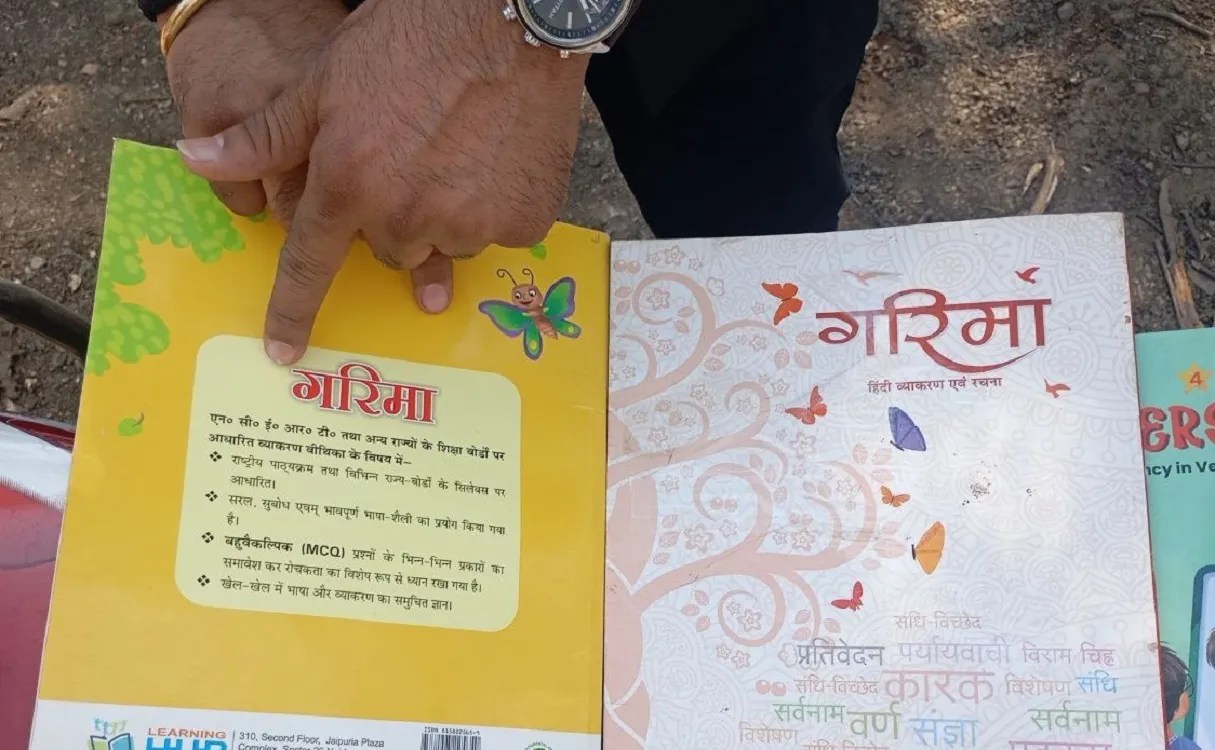 गरिमा
एन० सी० ई० आर० टी० तथा अन्य राज्यों के शिक्षा बोर्डों पर
आधारित व्याकरण वीथिका के विषय में–
❖ राष्ट्रीय पाठ्यक्रम तथा विभिन्न राज्य-बोर्डों के सिलेबस पर
आधारित।
❖ सरल, सुबोध एवम् भावपूर्ण भाषा-शैली का प्रयोग किया गया
है।
❖ बहुवैकल्पिक (MCQ) प्रश्नों के भिन्न-भिन्न प्रकारों का
समावेश कर रोचकता का विशेष रूप से ध्यान रखा गया है।
❖ खेल-खेल में भाषा और व्याकरण का समुचित ज्ञान।
LEARNING
HUB
310, Second Floor, Jaipuria Plaza
गरिमा
हिंदी व्याकरण एवं रचना
संधि-विच्छेद
प्रतिवेदन पर्यायवाची विराम चिह्न
संधि-विच्छेद कारक विशेषण संधि
सर्वनाम वर्ण संज्ञा सर्वनाम
विशेषण
4